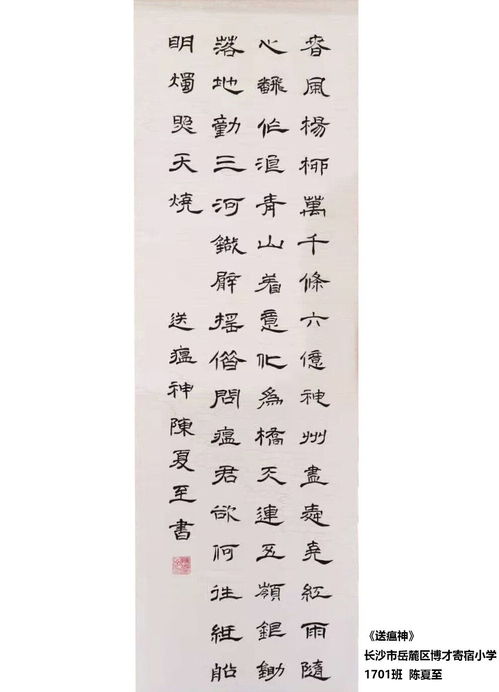 春風楊柳萬千條六億神州盡舜堯紅雨隨
心飜作浪青山着意化爲橋天連五嶺銀鋤
落地動三河鐵臂搖借問瘟君欲何往紙船
明燭照天燒 送瘟神陳夏至書
《送瘟神》
长沙市岳麓区博才寄宿小学
1701班 陈夏至